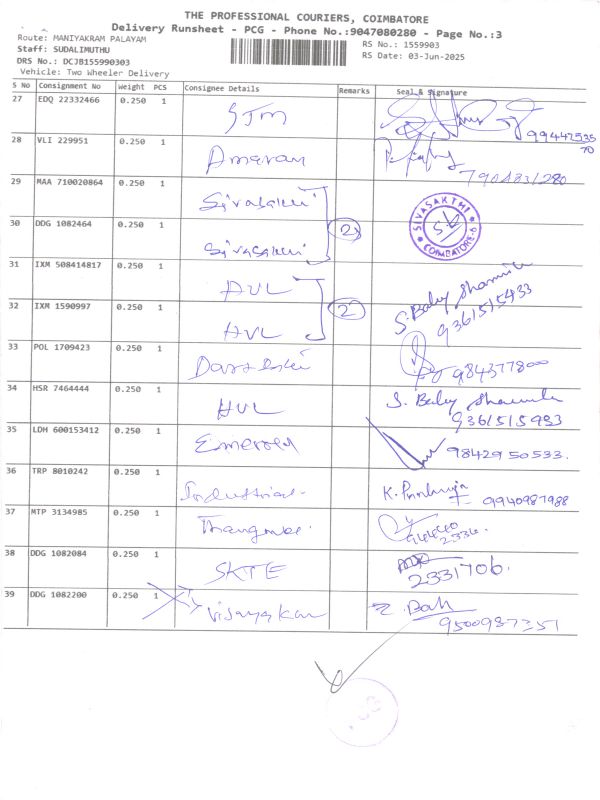 THE PROFESSIONAL COURIERS, COIMBATORE
Delivery Runsheet - PCG - Phone No.:9047080280 - Page No.:3
Route: MANIYAKRAM PALAYAM
RS No.: 1559903
Staff: SUDALIMUTHU
RS Date: 03-Jun-2025
DRS No.: DCJB155990303
Vehicle: Two Wheeler Delivery
S No Consignment No Weight PCS Consignee Details Remarks Seal & Signature
27 EDQ 22332466 0.250 1 STM 99442535
70
28 VLI 229951 0.250 1 Amaran
29 MAA 710020864 0.250 1 Sivasakthi
2
SIVASAKTHI COIMBATORE-6
30 DDG 1082464 0.250 1 Sivasakthi
31 IXM 508414817 0.250 1 AVL S. Baby Sharmila
2 9361515933
32 IXM 1590997 0.250 1 AVL
33 POL 1709423 0.250 1 984377800
34 HSR 7464444 0.250 1 AVL S. Baby
9361515933
35 LDH 600153412 0.250 1 Emerald 9842950533.
36 TRP 8010242 0.250 1 Industrial. K. 9940987988
37 MTP 3134985 0.250 1 94440
2334.
38 DDG 1082084 0.250 1 SKTE 2331706.
39 DDG 1082200 0.250 1 Vijayakar
9500987351